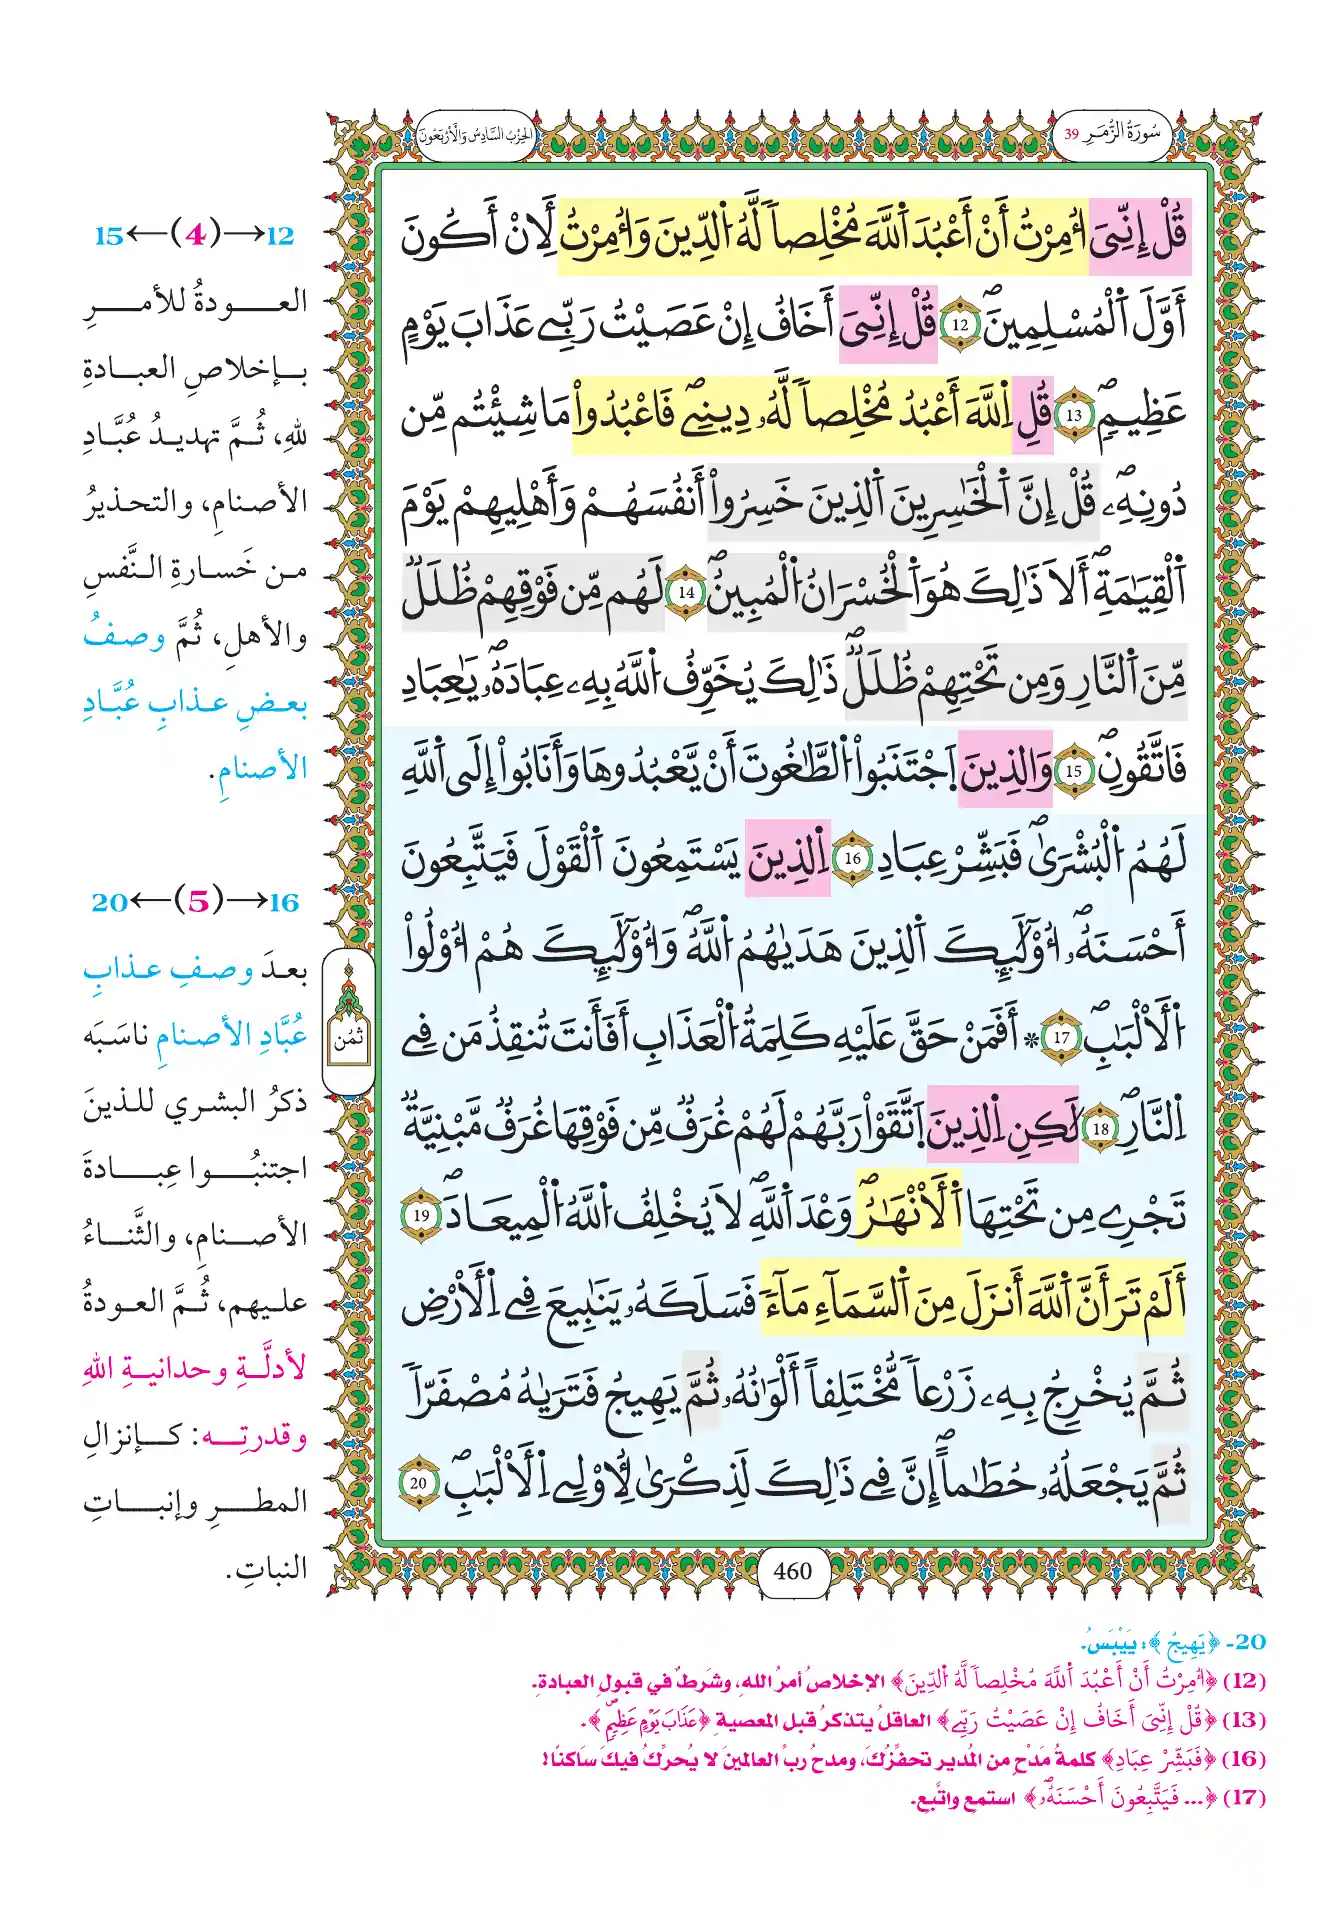 سُورَةُ الزُّمَر 39
الحِزْبُ السَّادِسُ وَالْأَرْبَعُونَ
قُلْ إِنِّيَ أُمِرْتُ أَنْ أَعْبُدَ اَللَّهَ مُخْلِصاً لَّهُ اُلدِّينَ وَأُمِرْتُ لِأَنْ أَكُونَ
أَوَّلَ اَلْمُسْلِمِينَۖ 12 قُلْ إِنِّيَ أَخَافُ إِنْ عَصَيْتُ رَبِّے عَذَابَ يَوْمٍ
عَظِيمٖۖ 13 قُلِ اِللَّهَ أَعْبُدُ مُخْلِصاً لَّهُۥ دِينِےۖ فَاعْبُدُواْ مَا شِئْتُم مِّن
دُونِهِۦۖ قُلْ إِنَّ اَلْخَٰسِرِينَ اَلذِينَ خَسِرُواْ أَنفُسَهُمْ وَأَهْلِيهِمْ يَوْمَ
اَلْقِيَٰمَةِۖ أَلَا ذَٰلِكَ هُوَ اَلْخُسْرَانُ اُلْمُبِينُۖ 14 لَهُم مِّن فَوْقِهِمْ ظُلَلٞ
مِّنَ اَلنَّارِ وَمِن تَحْتِهِمْ ظُلَلٞۖ ذَٰلِكَ يُخَوِّفُ اُللَّهُ بِهِۦ عِبَادَهُۥۖ يَٰعِبَادِ
فَاتَّقُونِۖ 15 وَالذِينَ اَجْتَنَبُواْ اُلطَّٰغُوتَ أَنْ يَّعْبُدُوهَا وَأَنَابُواْ إِلَى اَللَّهِ
لَهُمُ اُلْبُشْرَىٰۖ فَبَشِّرْ عِبَادِ 16 اِلذِينَ يَسْتَمِعُونَ اَلْقَوْلَ فَيَتَّبِعُونَ
أَحْسَنَهُۥۖ أُوْلَٰٓئِكَ اَلذِينَ هَدَىٰهُمُ اُللَّهُۖ وَأُوْلَٰٓئِكَ هُمْ أُوْلُواْ
اُلْأَلْبَٰبِۖ 17 * أَفَمَنْ حَقَّ عَلَيْهِ كَلِمَةُ اُلْعَذَابِ أَفَأَنتَ تُنقِذُ مَن فِے
اِلنَّارِۖ 18 لَٰكِنِ اِلذِينَ اَتَّقَوْاْ رَبَّهُمْ لَهُمْ غُرَفٞ مِّن فَوْقِهَا غُرَفٞ مَّبْنِيَّةٞ
تَجْرِے مِن تَحْتِهَا اَلْأَنْهَٰرُۖ وَعْدَ اَللَّهِۖ لَا يُخْلِفُ اُللَّهُ اُلْمِيعَادَۖ 19
أَلَمْ تَرَ أَنَّ اَللَّهَ أَنزَلَ مِنَ اَلسَّمَآءِ مَآءٗ فَسَلَكَهُۥ يَنَٰبِيعَ فِے اِلْأَرْضِ
ثُمَّ يُخْرِجُ بِهِۦ زَرْعاً مُّخْتَلِفاً أَلْوَٰنُهُۥ ثُمَّ يَهِيجُ فَتَرَىٰهُ مُصْفَرّاً
ثُمَّ يَجْعَلُهُۥ حُطَٰماًۖ إِنَّ فِے ذَٰلِكَ لَذِكْرَىٰ لِأُوْلِے اِلْأَلْبَٰبِۖ 20
ثُمُن
460
12→(4)←15
العودةُ للأمرِ
بإخلاصِ العبادةِ
للهِ، ثُمَّ تهديدُ عُبَّادِ
الأصنامِ، والتحذيرُ
من خَسارةِ النَّفسِ
والأهلِ، ثُمَّ وصفُ
بعضِ عذابِ عُبَّادِ
الأصنامِ.
16→(5)←20
بعدَ وصفِ عذابِ
عُبَّادِ الأصنامِ ناسَبَه
ذكرُ البشري للذينَ
اجتنبُوا عِبادةَ
الأصنامِ، والثَّناءُ
عليهم، ثُمَّ العودةُ
لأدلَّةِ وحدانيةِ اللهِ
وقدرتِه: كإنزالِ
المطرِ وإنباتِ
النباتِ.
20- ﴿يَهِيجُ﴾: يَيْبَسُ.
(12) ﴿أُمِرْتُ أَنْ أَعْبُدَ اَللَّهَ مُخْلِصاً لَّهُ اُلدِّينَ﴾ الإخلاصُ أمرُ اللهِ، وشَرطٌ في قبولِ العبادةِ.
(13) ﴿قُلْ إِنِّيَ أَخَافُ إِنْ عَصَيْتُ رَبِّے﴾ العاقلُ يتذكرُ قبل المعصيةِ ﴿عَذَابَ يَوْمٍ عَظِيمٖۖ﴾.
(16) ﴿فَبَشِّرْ عِبَادِ﴾ كلمةُ مَدْحٍ من المُديرِ تحفِّزُكَ، ومدحُ ربِّ العالمينَ لا يُحركُ فيكَ سَاكنًا!
(17) ﴿... فَيَتَّبِعُونَ أَحْسَنَهُۥۖ﴾ استمع واتَّبع.